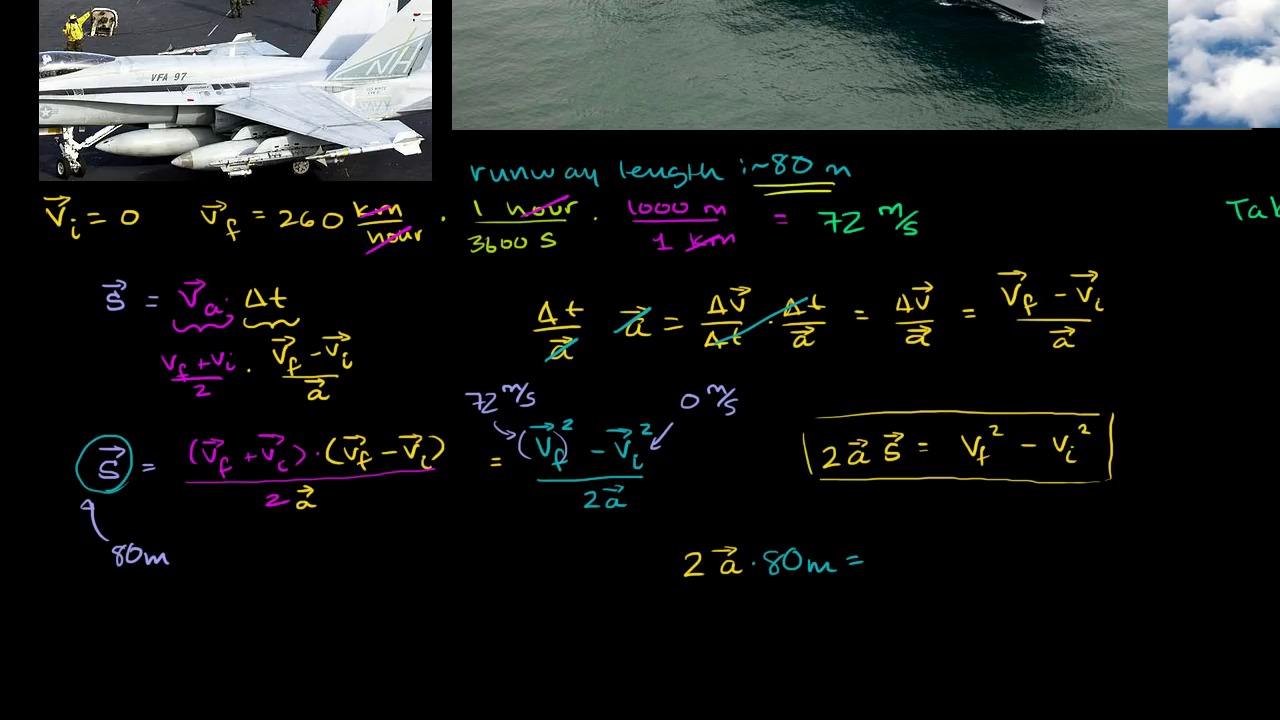 VFA 97
NH
runway length : ~80 m
v⃗i = 0 v⃗f = 260 km/hour · 1 hour/3600 s · 1000 m/1 km = 72 m/s
Tak
s⃗ = v⃗a · Δt
(vf + vi)/2 · (v⃗f − v⃗i)/a⃗
Δt/a⃗ a⃗ = Δv⃗/Δt · Δt/a⃗ = Δv⃗/a⃗ = (v⃗f − v⃗i)/a⃗
72 m/s 0 m/s
s⃗ = (v⃗f + v⃗i) · (v⃗f − v⃗i)/2a⃗ = ((v⃗f)² − v⃗i²)/2a⃗
2a⃗ s⃗ = vf² − vi²
80m
2a⃗ · 80m =